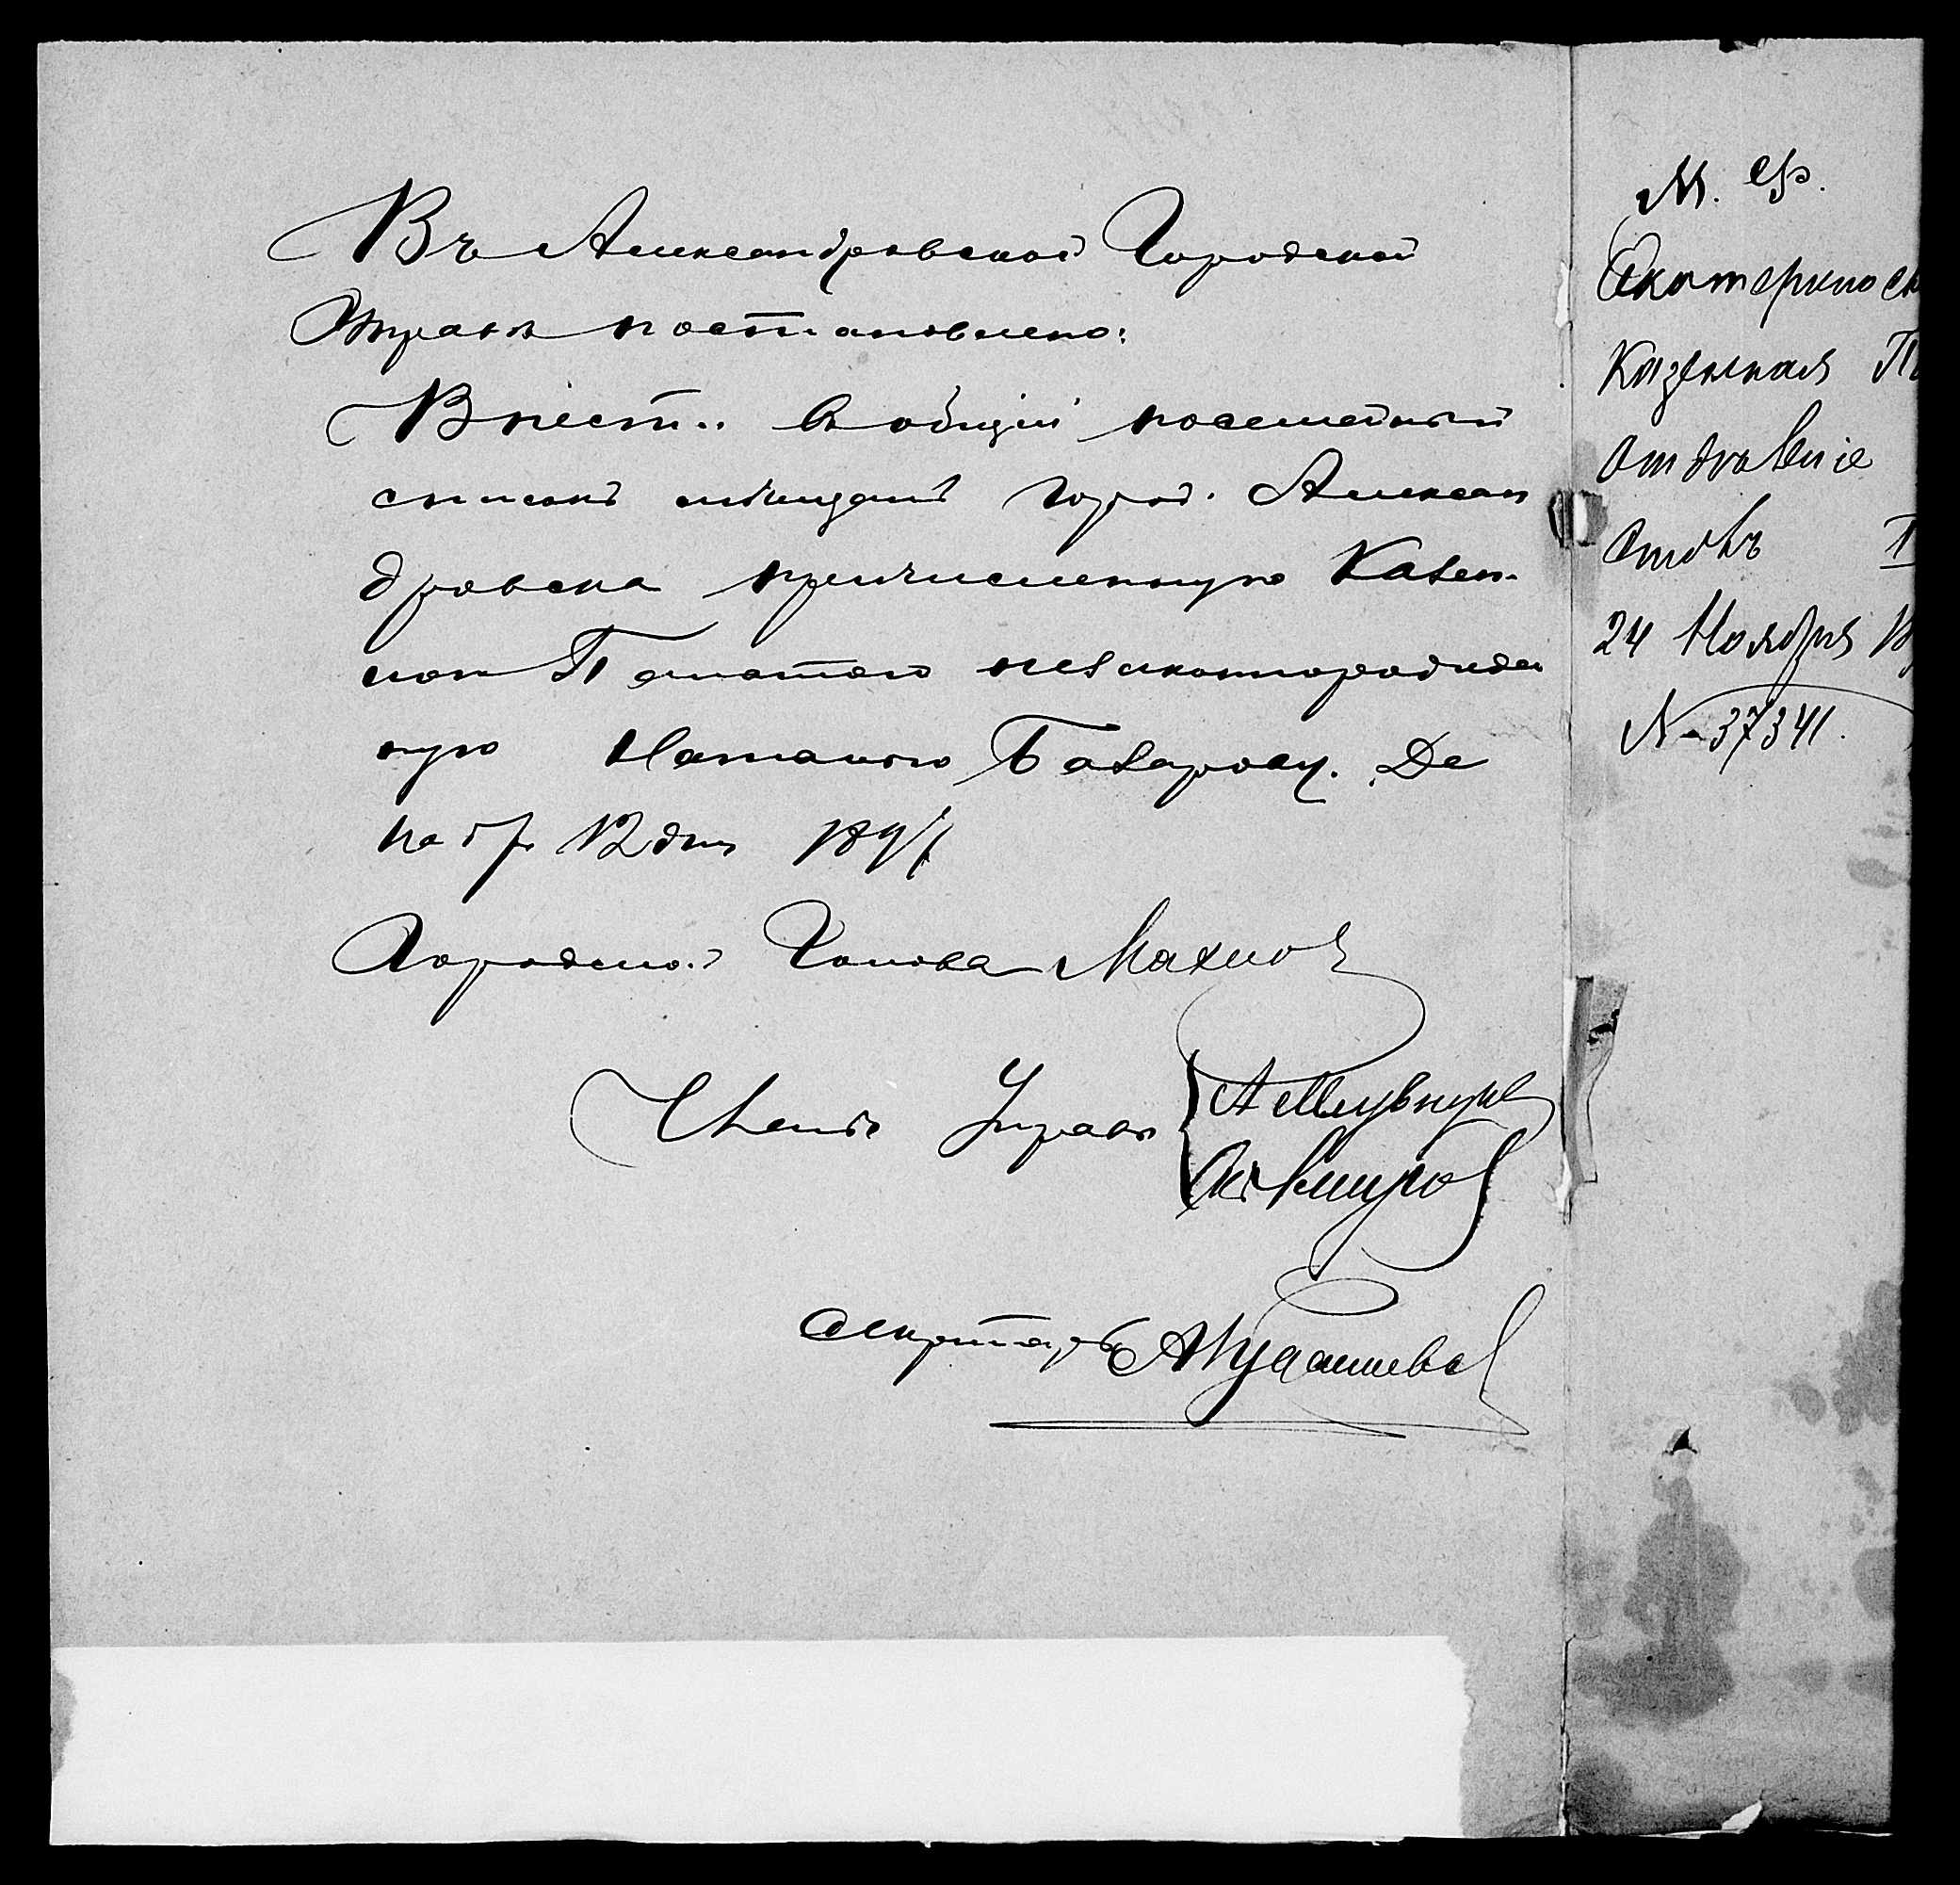 Въ Александровской Городской
Управѣ постановлено:
Внести въ общій посемейный
списокъ мѣщанъ город. Алексан
дровска причисленную Казен-
ной Палатою незаконнорожден
ную Наталью Базарову. Де
кабр 12 дня 1897
Городской Голова Махно
Члены Управы
Секретарь А Кудашевъ
М. Ф.
Екатериносл
Казенная П
Отдѣленіе
Столъ
24 Ноября 18
№ 37341.